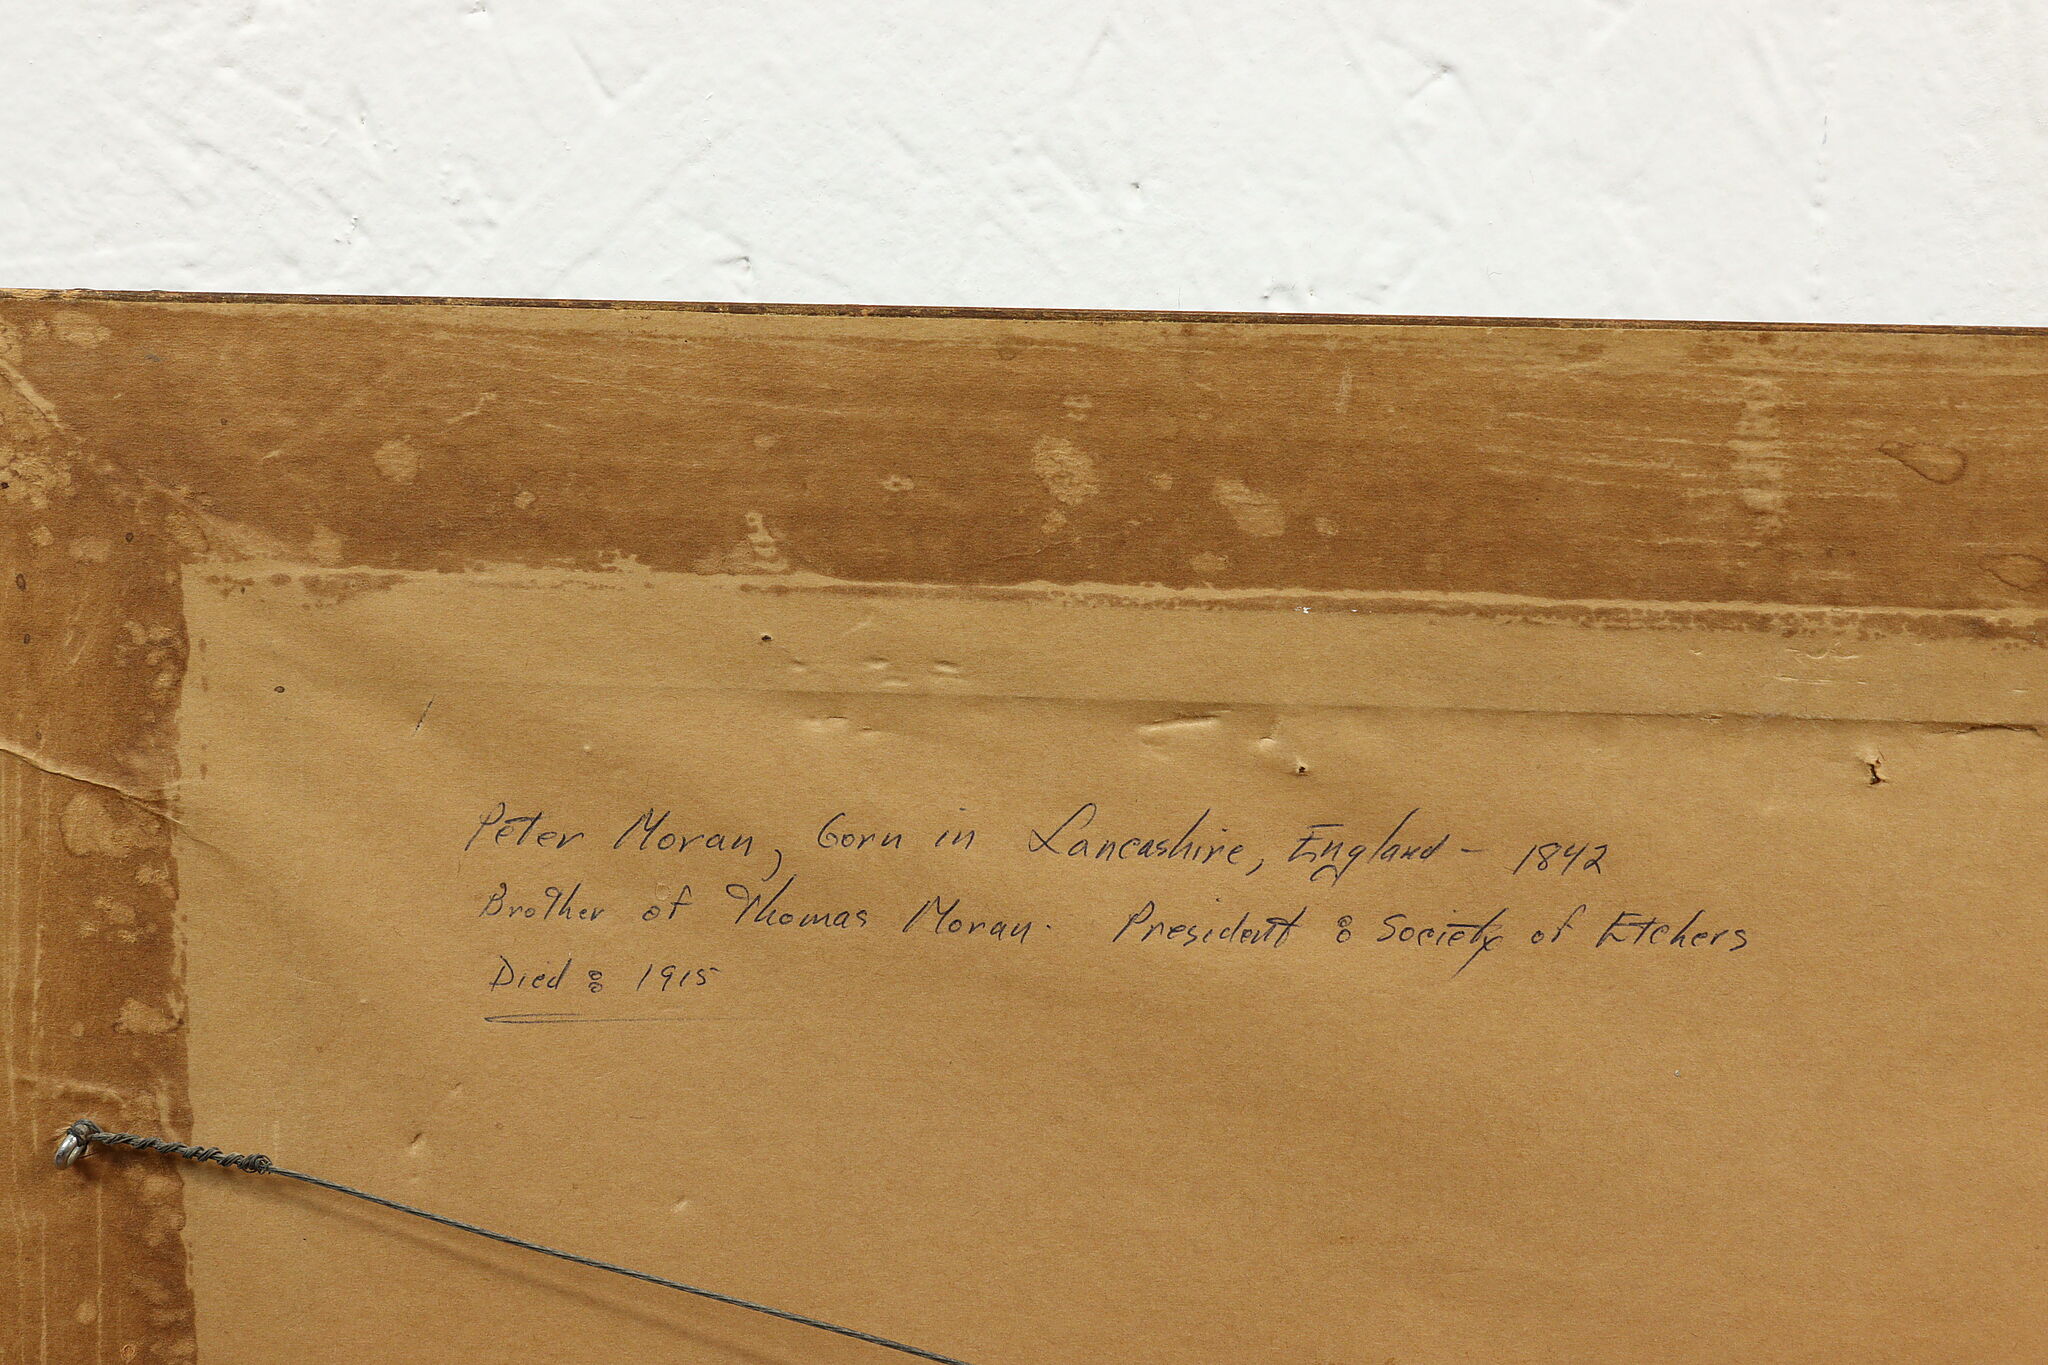 Peter Moran, born in Lancashire, England - 1842
Brother of Thomas Moran. President : Society of Etchers
Died : 1915